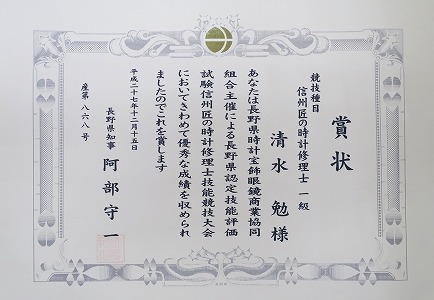 賞状
競技種目
信州匠の時計修理士 一級
清水 勉 様
あなたは長野県時計宝飾眼鏡商業協同
組合主催による長野県認定技能評価
試験信州匠の時計修理士技能競技大会
においてきわめて優秀な成績を収められ
ましたのでこれを賞します
平成二十七年十二月十五日
長野県知事 阿部守一
産第八六八号